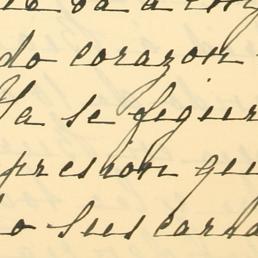 do corazon
Ya se figur
presion qu
o sus carta